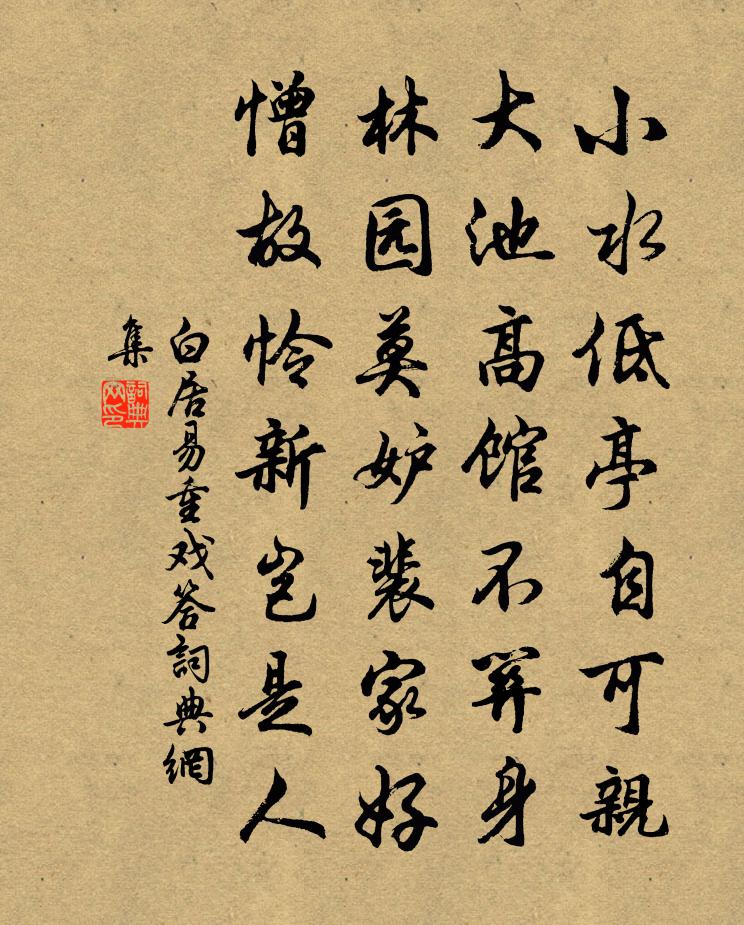 小水低亭自可親
大池高館不関身
林园莫妒裴家好
憎故怜新岂是人
白居易重戏答詞典網
集
詞典
网印